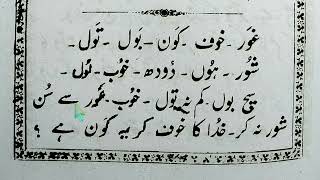 غَور ۔ خَوف ۔ کَون ۔ بَول ۔ تَول ۔
شُور ۔ ہُوں ۔ دُودھ ۔ خُوب ۔ تُول ۔
سچ بول ۔ کم نہ تول ۔ خُوب غَور سے سُن
شور نہ کر ۔ خُدا کا خَوف کر یہ کَون ہے ؟